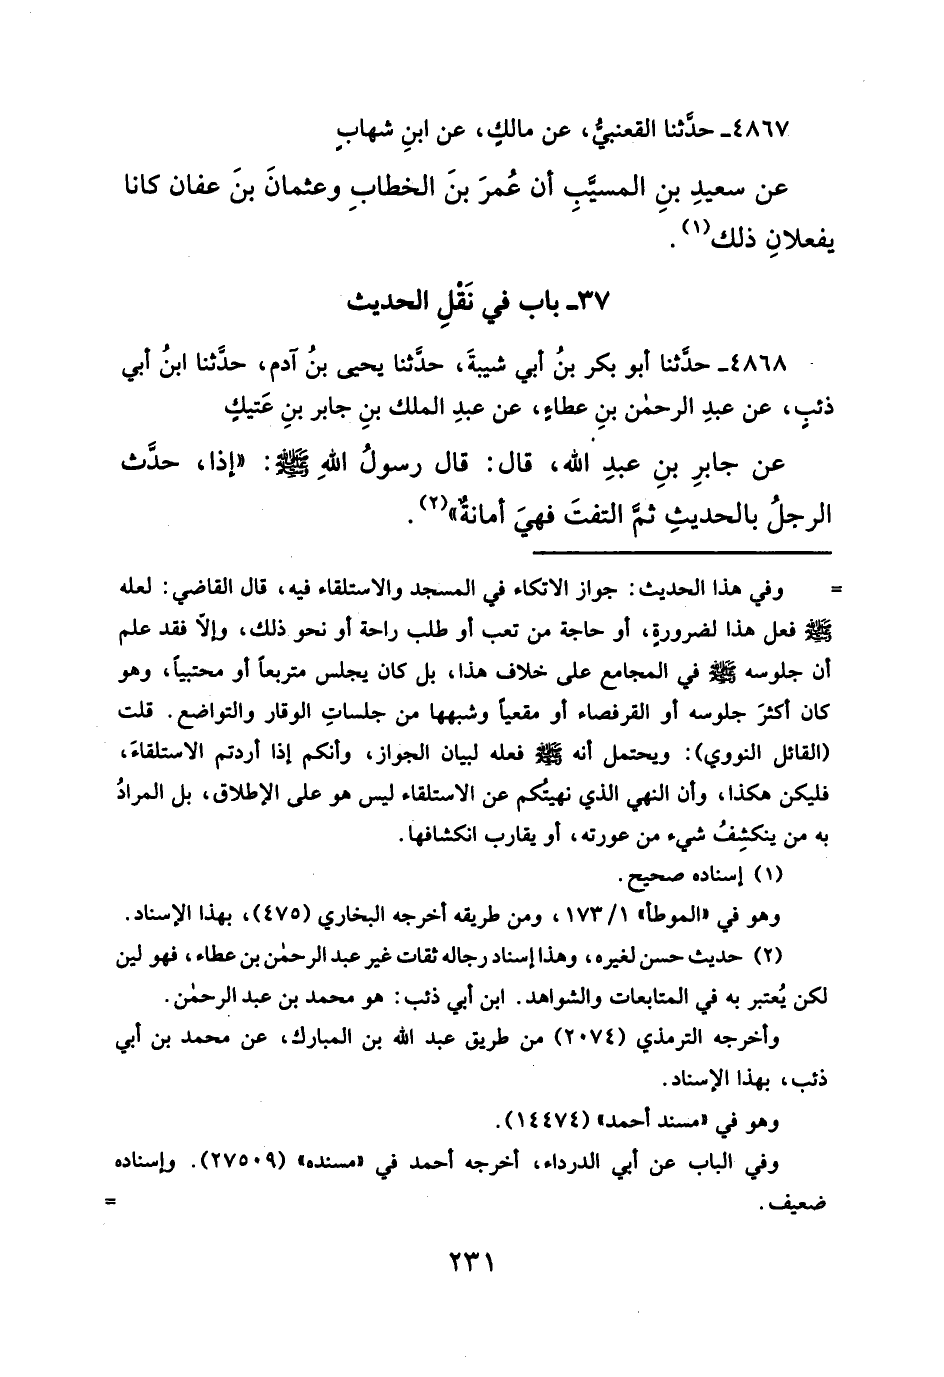 ٤٨٦٧ـ حدَّثنا القعنبيُّ، عن مالكٍ، عن ابنِ شهابٍ
عن سعيدِ بنِ المسيَّبِ أن عُمرَ بنَ الخطابِ وعثمانَ بنَ عفان كانا
يفعلانِ ذلك(١).
٣٧ـ باب في نَقْلِ الحديث
٤٨٦٨ـ حدَّثنا أبو بكر بنُ أبي شيبةَ، حدَّثنا يحيى بنُ آدم، حدَّثنا ابنُ أبي
ذئبٍ، عن عبدِ الرحمٰن بنِ عطاءٍ، عن عبدِ الملك بنِ جابر بنِ عَتيكٍ
عن جابرِ بنِ عبدِ الله، قال: قال رسولُ اللهِ ﷺ: «إذا، حدَّث
الرجلُ بالحديثِ ثمَّ التفتَ فهيَ أمانةٌ»(٢).
= وفي هذا الحديث: جواز الاتكاء في المسجد والاستلقاء فيه، قال القاضي: لعله
ﷺ فعل هذا لضرورةٍ، أو حاجة من تعب أو طلب راحة أو نحو ذلك، وإلاّ فقد علم
أن جلوسه ﷺ في المجامع على خلاف هذا، بل كان يجلس متربعاً أو محتبياً، وهو
كان أكثرَ جلوسه أو القرفصاء أو مقعياً وشبهها من جلساتِ الوقار والتواضع. قلت
(القائل النووي): ويحتمل أنه ﷺ فعله لبيان الجواز، وأنكم إذا أردتم الاستلقاءَ،
فليكن هكذا، وأن النهي الذي نهيتُكم عن الاستلقاء ليس هو على الإطلاق، بل المرادُ
به من ينكشِفُ شيء من عورته، أو يقارب انكشافها.
(١) إسناده صحيح.
وهو في «الموطأ» ١/ ١٧٣، ومن طريقه أخرجه البخاري (٤٧٥)، بهذا الإسناد.
(٢) حديث حسن لغيره، وهذا إسناد رجاله ثقات غير عبد الرحمٰن بن عطاء، فهو لين
لكن يُعتبر به في المتابعات والشواهد. ابن أبي ذئب: هو محمد بن عبد الرحمٰن.
وأخرجه الترمذي (٢٠٧٤) من طريق عبد الله بن المبارك، عن محمد بن أبي
ذئب، بهذا الإسناد.
وهو في «مسند أحمد» (١٤٤٧٤).
وفي الباب عن أبي الدرداء، أخرجه أحمد في «مسنده» (٢٧٥٠٩). وإسناده
ضعيف. =
٢٣١